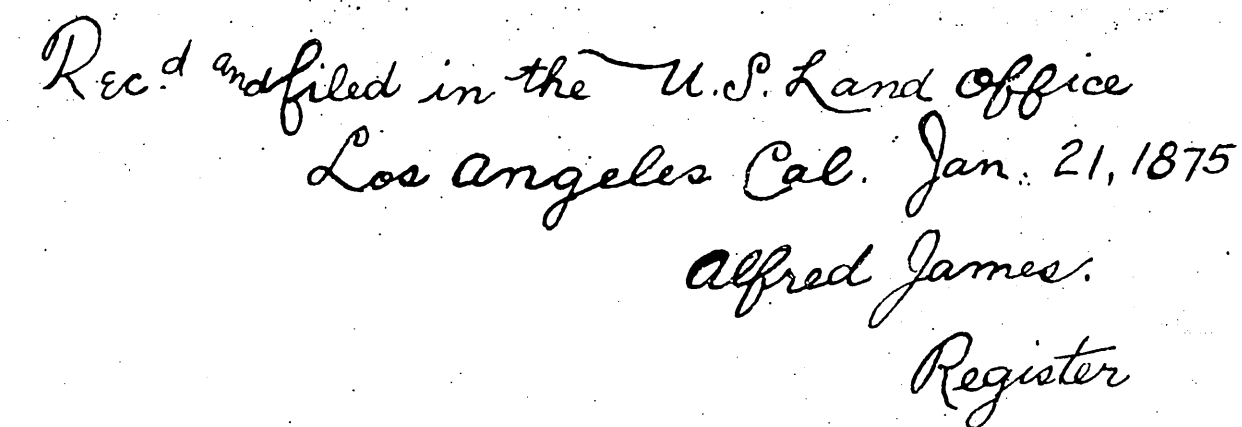 Rec.d and filed in the U.S. Land Office
Los Angeles Cal. Jan. 21, 1875
Alfred James.
Register